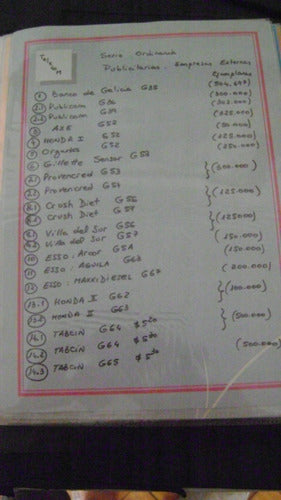 Telecom
Serie Ordinaria
Publicitarias. Empresas Externas
Ejemplares
1 Banco de Galicia G35 (504.647)
2.1 Publicom G36 (300.000)
2.2 Publicom G39 (302.000)
3 AXE G52 (225.000)
4 HONDA I G52 (50.000)
5 Organtes G52 (225.000)
6 Gillette Sensor G53 (250.000)
7.1 Provencred G53 } (500.000)
Provencred G54
8.1 Crush Diet G56 } (125.000)
Crush Diet G54
9.1 Villa del Sur G56 } (125000)
9.2 Villa del Sur G57
10 ESSO: Arcor G5A (250.000)
11 ESSO: AGUILA G63 (150.000)
12 ESSO: MAXXIDIESEL G67 (200.000)
13.1 HONDA II G62 } (100.000)
13.2 HONDA II G63
14.1 TABCIN G64 $5.20 } (500.000)
14.2 TABCIN G64 $5.50
14.3 TABCIN G65 $5.20 (500.000)